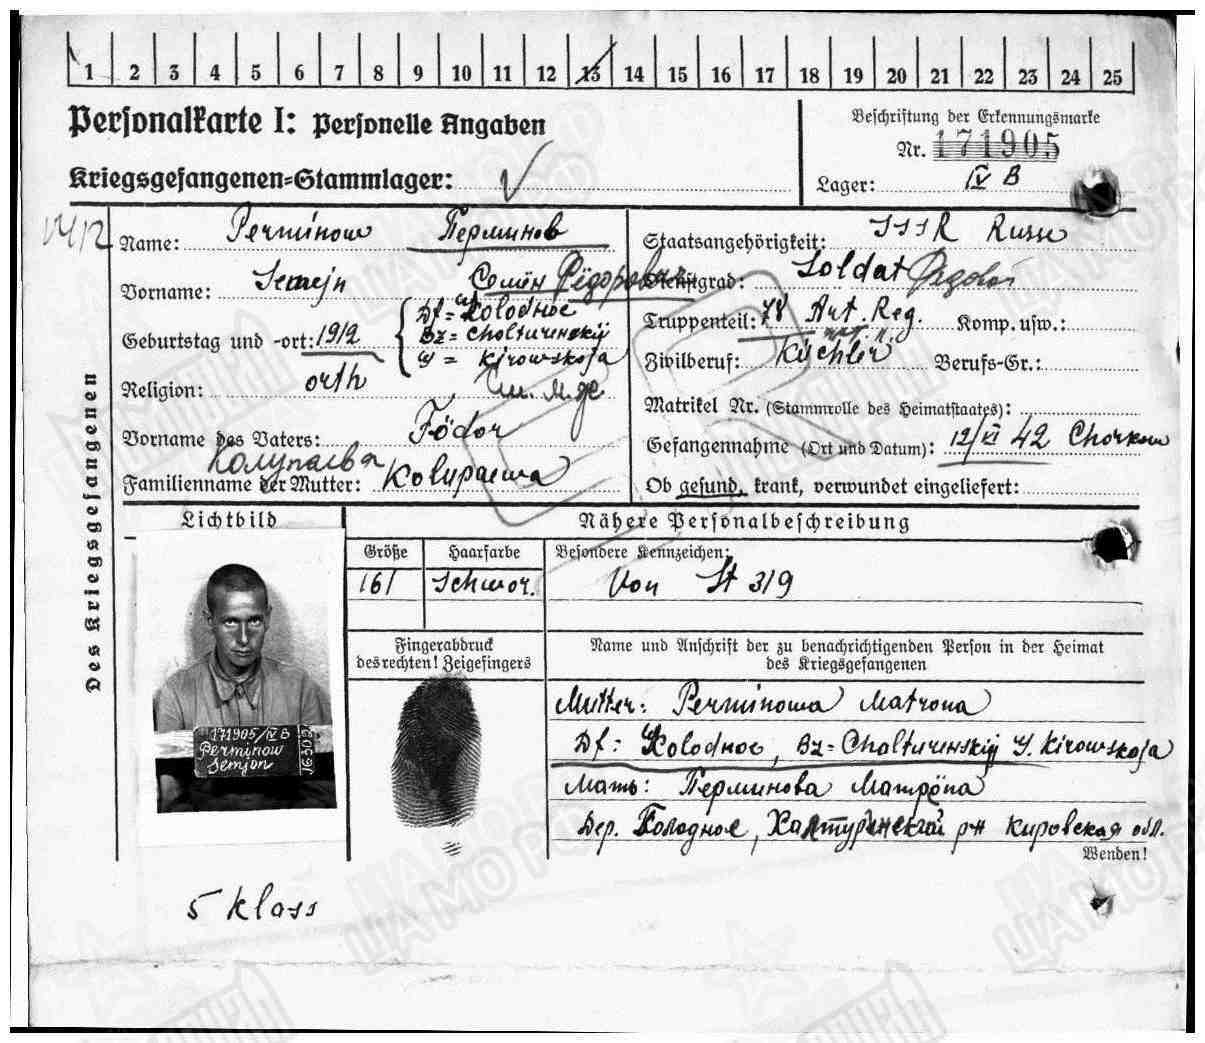 1 2 3 4 5 6 7 8 9 10 11 12 13 14 15 16 17 18 19 20 21 22 23 24 25
Personalkarte I: Personelle Angaben
Kriegsgefangenen-Stammlager:
Beschriftung der Erkennungsmarke
Nr. 171905
Lager: IV B
Des Kriegsgefangenen
Name: Perminow Перминов
Vorname: Semejn Семён Фёдорович
Geburtstag und -ort: 1912
Df = Kolodnoe
Bz = Cholturinskij
G = Kirowskoja
Religion: orth
Vorname des Vaters: Födor
Колупаева
Familienname der Mutter: Kolupaewa
Staatsangehörigkeit: SSSR Russe
Dienstgrad: Soldat
Truppenteil: 78 Art. Reg. Komp. usw.:
Zivilberuf: Berufs-Gr.:
Matrikel Nr. (Stammrolle des Heimatstaates):
Gefangennahme (Ort und Datum): 12/VI 42 Chorkow
Ob gesund, krank, verwundet eingeliefert:
Lichtbild
Nähere Personalbeschreibung
Größe Haarfarbe Besondere Kennzeichen:
161 Schwor. Von St 319
Fingerabdruck
des rechten! Zeigefingers
Name und Anschrift der zu benachrichtigenden Person in der Heimat
des Kriegsgefangenen
Mutter: Perminowa Matrona
Df: Kolodnoe, Bz = Cholturinskij G. Kirowskoja
Мать: Перминова Матрёна
Дер. Холодное, Халтуринский р-н Кировская обл.
Wenden!
171905/IV B
Perminow
Semjon
5 klass
ЦАМО РФ